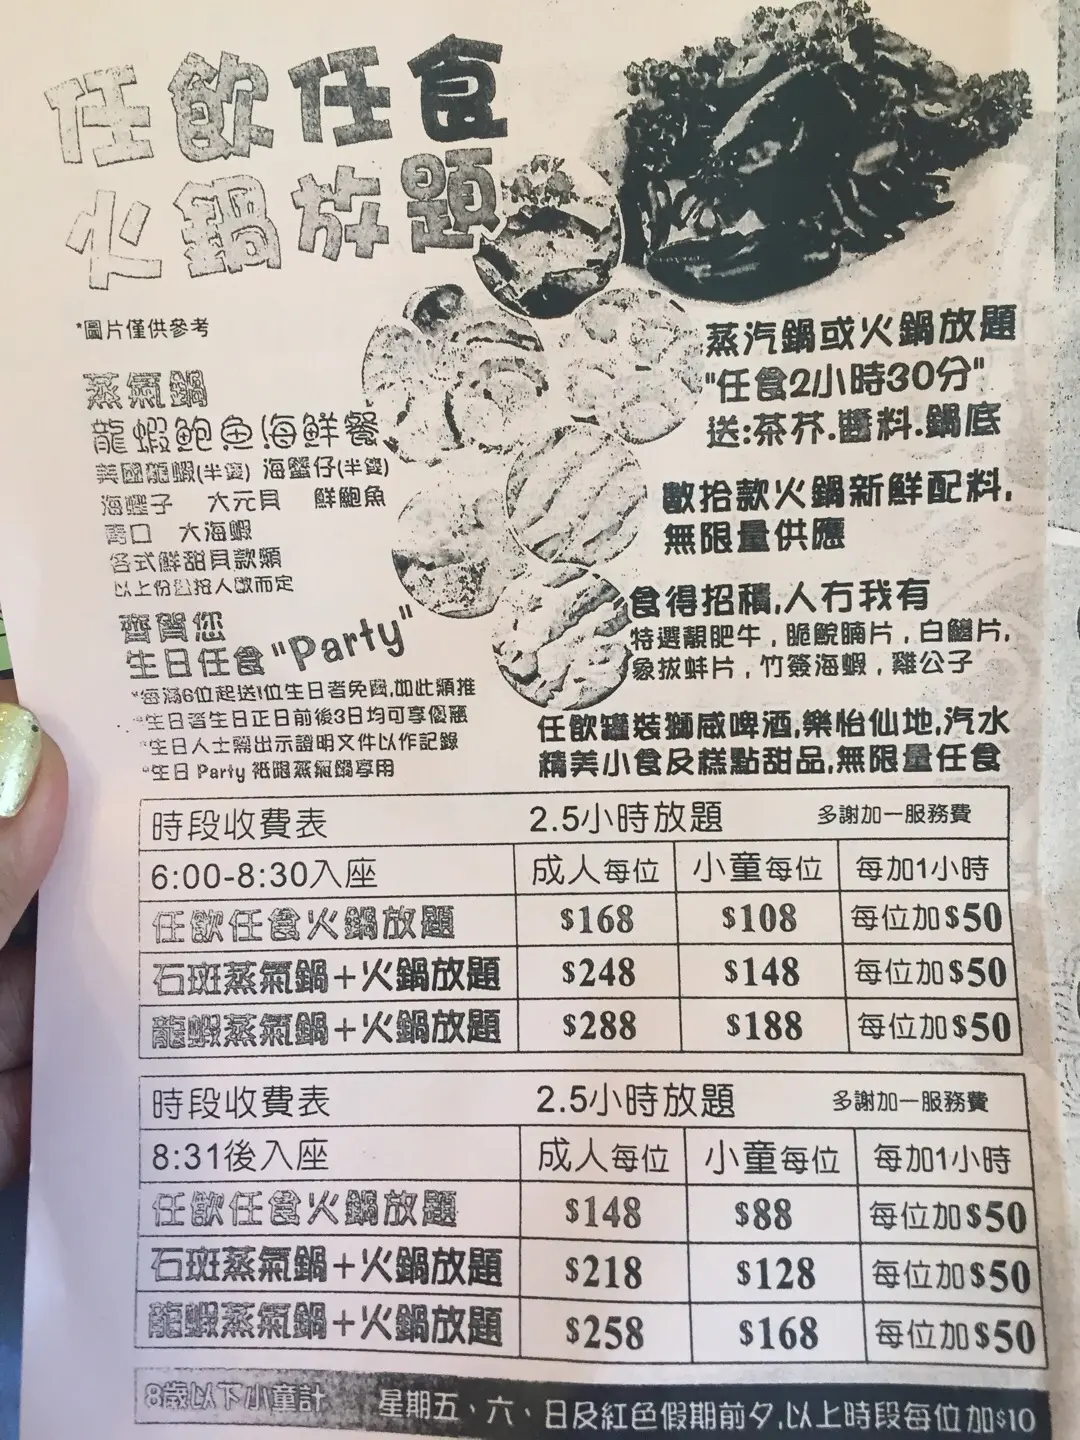 任飲任食
火鍋放題
*圖片僅供參考
蒸氣鍋
龍蝦鮑魚海鮮餐
美國龍蝦(半隻) 海蟹仔(半隻)
海蟶子 大元貝 鮮鮑魚
大海蝦
各式鮮甜貝款類
以上份量按人數而定
齊賀您
生日任食"Party"
*每滿6位起送1位生日者免費,如此類推
*生日者生日正日前後3日均可享優惠
*生日人士需出示證明文件以作記錄
*生日 Party 祇限蒸氣鍋享用
蒸汽鍋或火鍋放題
"任食2小時30分"
送:茶芥.醬料.鍋底
數拾款火鍋新鮮配料,
無限量供應
食得招積,人冇我有
特選靚肥牛,脆鯇腩片,白鱔片,
象拔蚌片,竹簽海蝦,雞公子
任飲罐裝獅威啤酒,樂怡仙地,汽水
精美小食及糕點甜品,無限量任食
時段收費表 2.5小時放題 多謝加一服務費
6:00-8:30入座 成人每位 小童每位 每加1小時
任飲任食火鍋放題 $168 $108 每位加$50
石斑蒸氣鍋+火鍋放題 $248 $148 每位加$50
龍蝦蒸氣鍋+火鍋放題 $288 $188 每位加$50
時段收費表 2.5小時放題 多謝加一服務費
8:31後入座 成人每位 小童每位 每加1小時
任飲任食火鍋放題 $148 $88 每位加$50
石斑蒸氣鍋+火鍋放題 $218 $128 每位加$50
龍蝦蒸氣鍋+火鍋放題 $258 $168 每位加$50
8歲以下小童計 星期五、六、日及紅色假期前夕,以上時段每位加$10